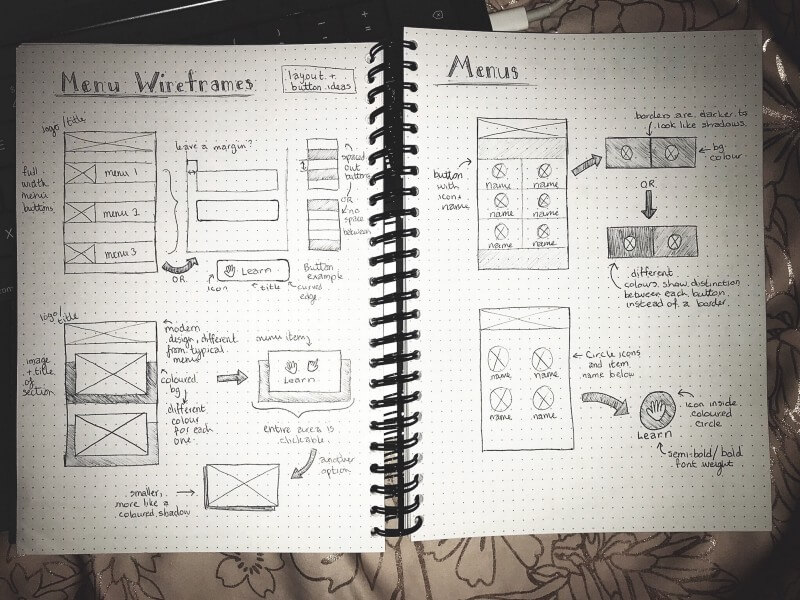 Menu Wireframes
layout +
button ideas
logo/title
full
width
menu
buttons
menu 1
menu 2
menu 3
leave a margin?
spaced
out
buttons
OR
no
space
between
OR
Learn
icon
title
curved
edge
Button
example
logo/title
image
+ title
of
section
modern
design, different
from typical
menus
coloured
bg
different
colour
for each
one.
menu item
Learn
entire area is
clickable.
another
option
smaller,
more like a
coloured shadow
Menus
button
with
icon +
name
name name
name name
name name
borders are darker to
look like shadows
bg
colour
OR
different
colours show distinction
between each button
instead of a border.
name name
name name
Circle icons
and item
name below
Learn
icon inside
coloured
circle
semi-bold/bold
font weight